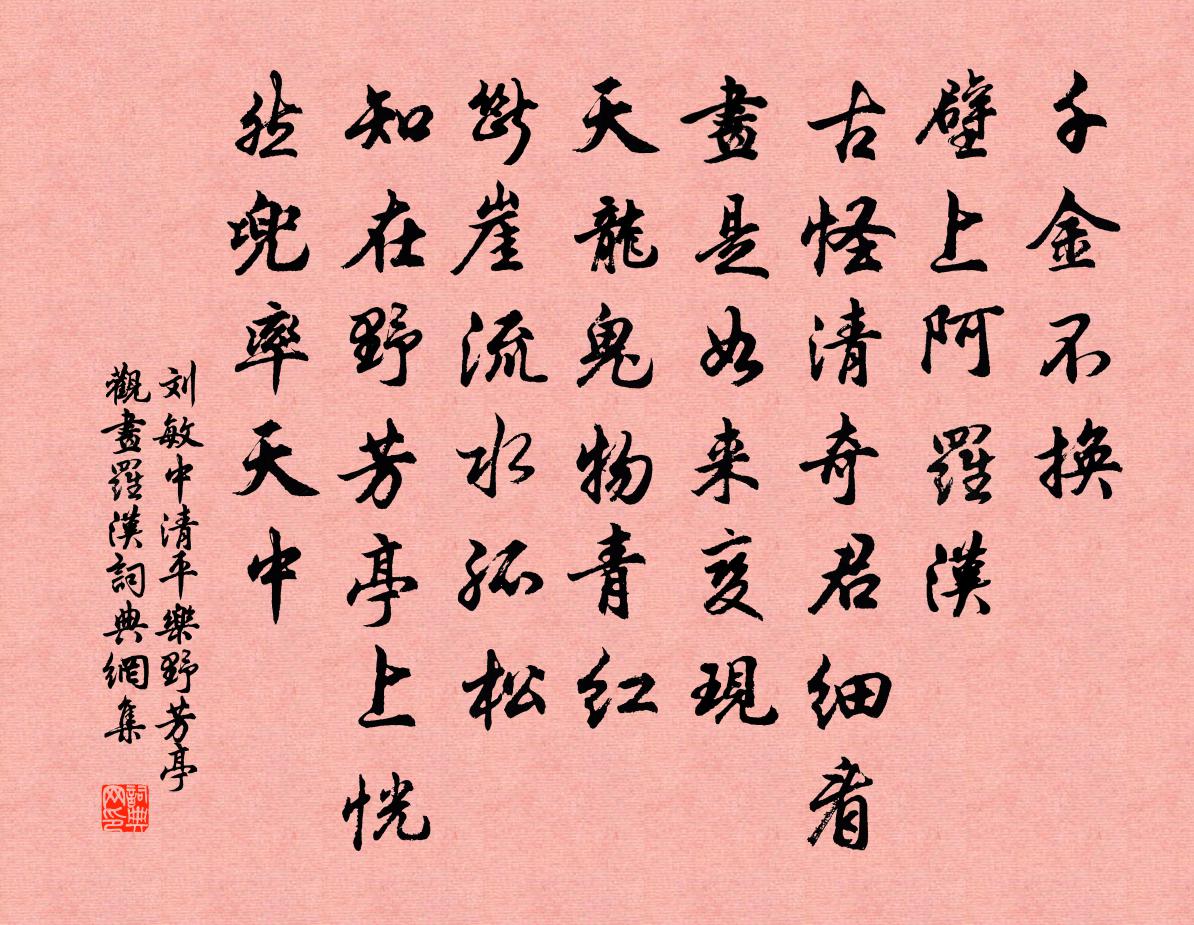 千金不换
壁上阿羅漢
古怪清奇君细看
畫是如来变现
天龍鬼物青红
斷崖流水孤松
知在野芳亭上恍
然兜率天中
刘敏中清平樂野芳亭
觀畫羅漢詞典網集
詞典
网印